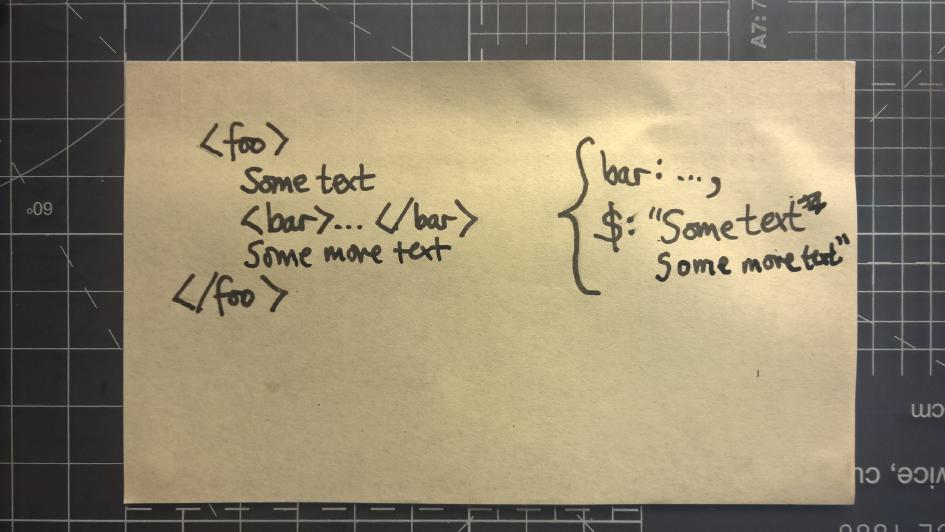 <foo>
Some text
<bar>... </bar>
Some more text
</foo>
{
bar: ...,
$: "Some text
Some more text"
A7:7
60°
cm